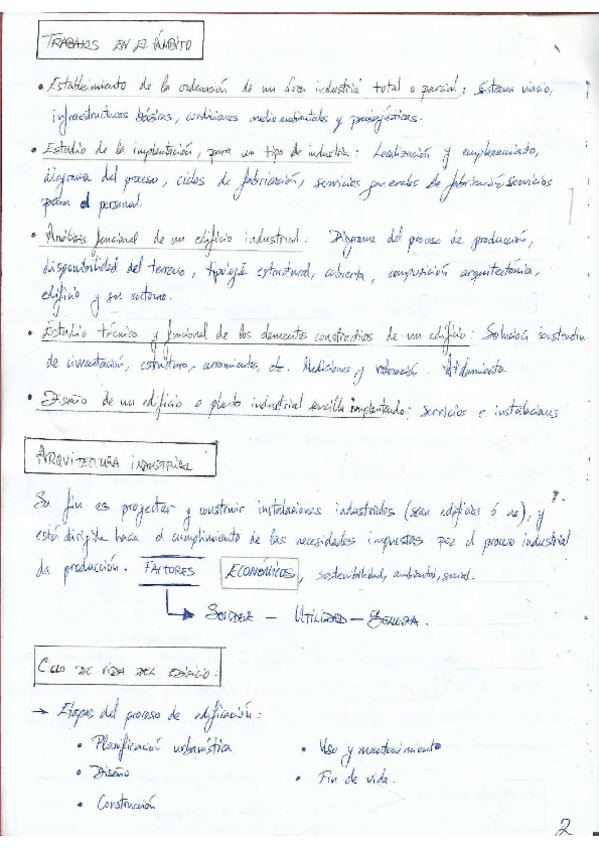 TRABAJOS EN EL ÁMBITO
• Establecimiento de la ordenación de un área industrial total o parcial: Sistema viario,
infraestructuras básicas, condiciones medioambientales y paisajísticas.
• Estudio de la implantación, para un tipo de industria: Localización y emplazamiento,
diagrama del proceso, ciclos de fabricación, servicios generales de fabricación, servicios
para el personal.
• Análisis funcional de un edificio industrial: Diagrama del proceso de producción,
disponibilidad del terreno, tipología estructural, cubierta, composición arquitectónica,
edificio y su entorno.
• Estudio técnico y funcional de los elementos constructivos de un edificio: Solución constructiva
de cimentación, estructura, cerramientos, etc. Mediciones y valoración. Aislamiento
• Diseño de un edificio o planta industrial sencilla implantando: Servicios e instalaciones
ARQUITECTURA INDUSTRIAL
Su fin es proyectar y construir instalaciones industriales (sean edificios ó no), y
está dirigida hacia el cumplimiento de las necesidades impuestas por el proceso industrial
de producción. FACTORES ECONÓMICOS, sostenibilidad, ambiental, social.
SOLIDEZ — UTILIDAD — BELLEZA.
CICLO DE VIDA DEL EDIFICIO:
→ Etapas del proceso de edificación:
• Planificación urbanística
• Diseño
• Construcción
• Uso y mantenimiento
• Fin de vida.
2